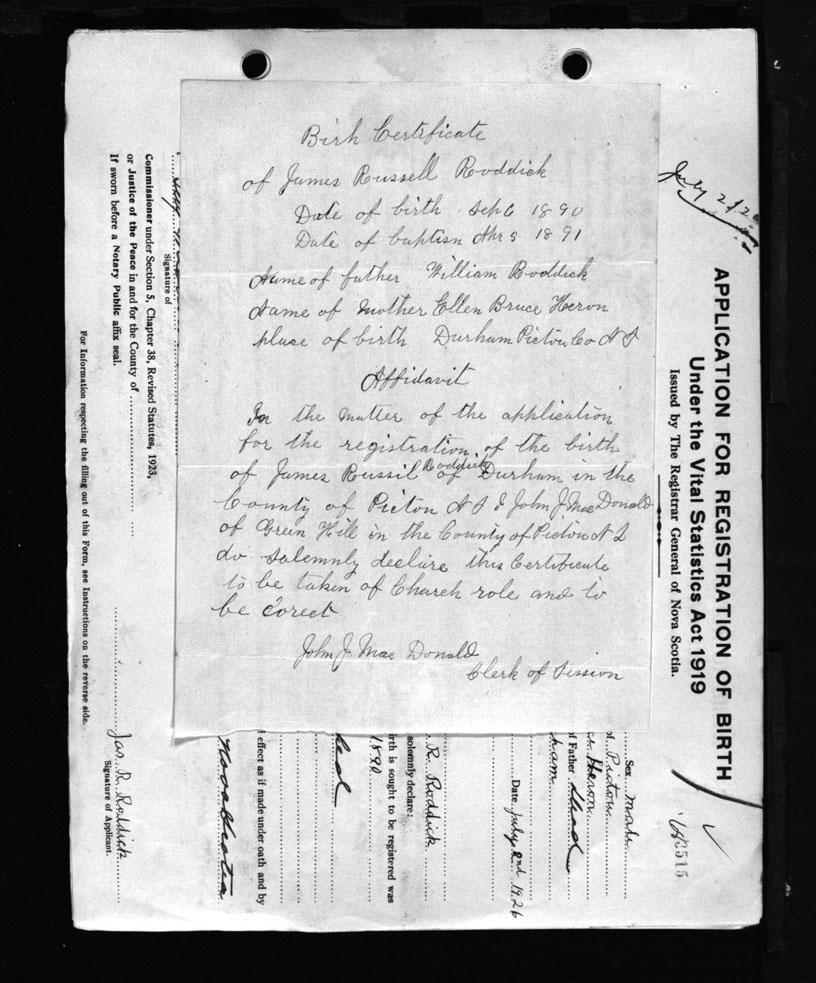 Birh Certificate
of James Russell Roddick
Date of birth Sep 6 1890
Date of baptism 1891
Name of father William Roddick
Name of Mother Ellen Bruce Heron
place of birth Durham Pictou Co N S
Affidavit
In the matter of the application
for the registration of the birth
of James Russil Roddick of Durham in the
County of Picton N S I John J MacDonald
of Green Hill in the County of Picton N S
do solemnly declare this Certificate
to be taken of Church role and to
be corect
John J Mac Donald
Clerk of Session
July 2/26
APPLICATION FOR REGISTRATION OF BIRTH
Under the Vital Statistics Act 1919
Issued by The Registrar General of Nova Scotia.
3515
Sex Male
of Pictou
Heron
of Father Dead
ham
Date July 2nd 1926
R. Roddick
solemnly declare:
irth is sought to be registered was
1890
l effect as if made under oath and by
Nova Scotia
Signature of
Commissioner under Section 5, Chapter 38, Revised Statutes, 1923,
or Justice of the Peace in and for the County of
If sworn before a Notary Public affix seal.
Jas. R. Roddick
Signature of Applicant.
For Information respecting the filling out of this Form, see Instructions on the reverse side.